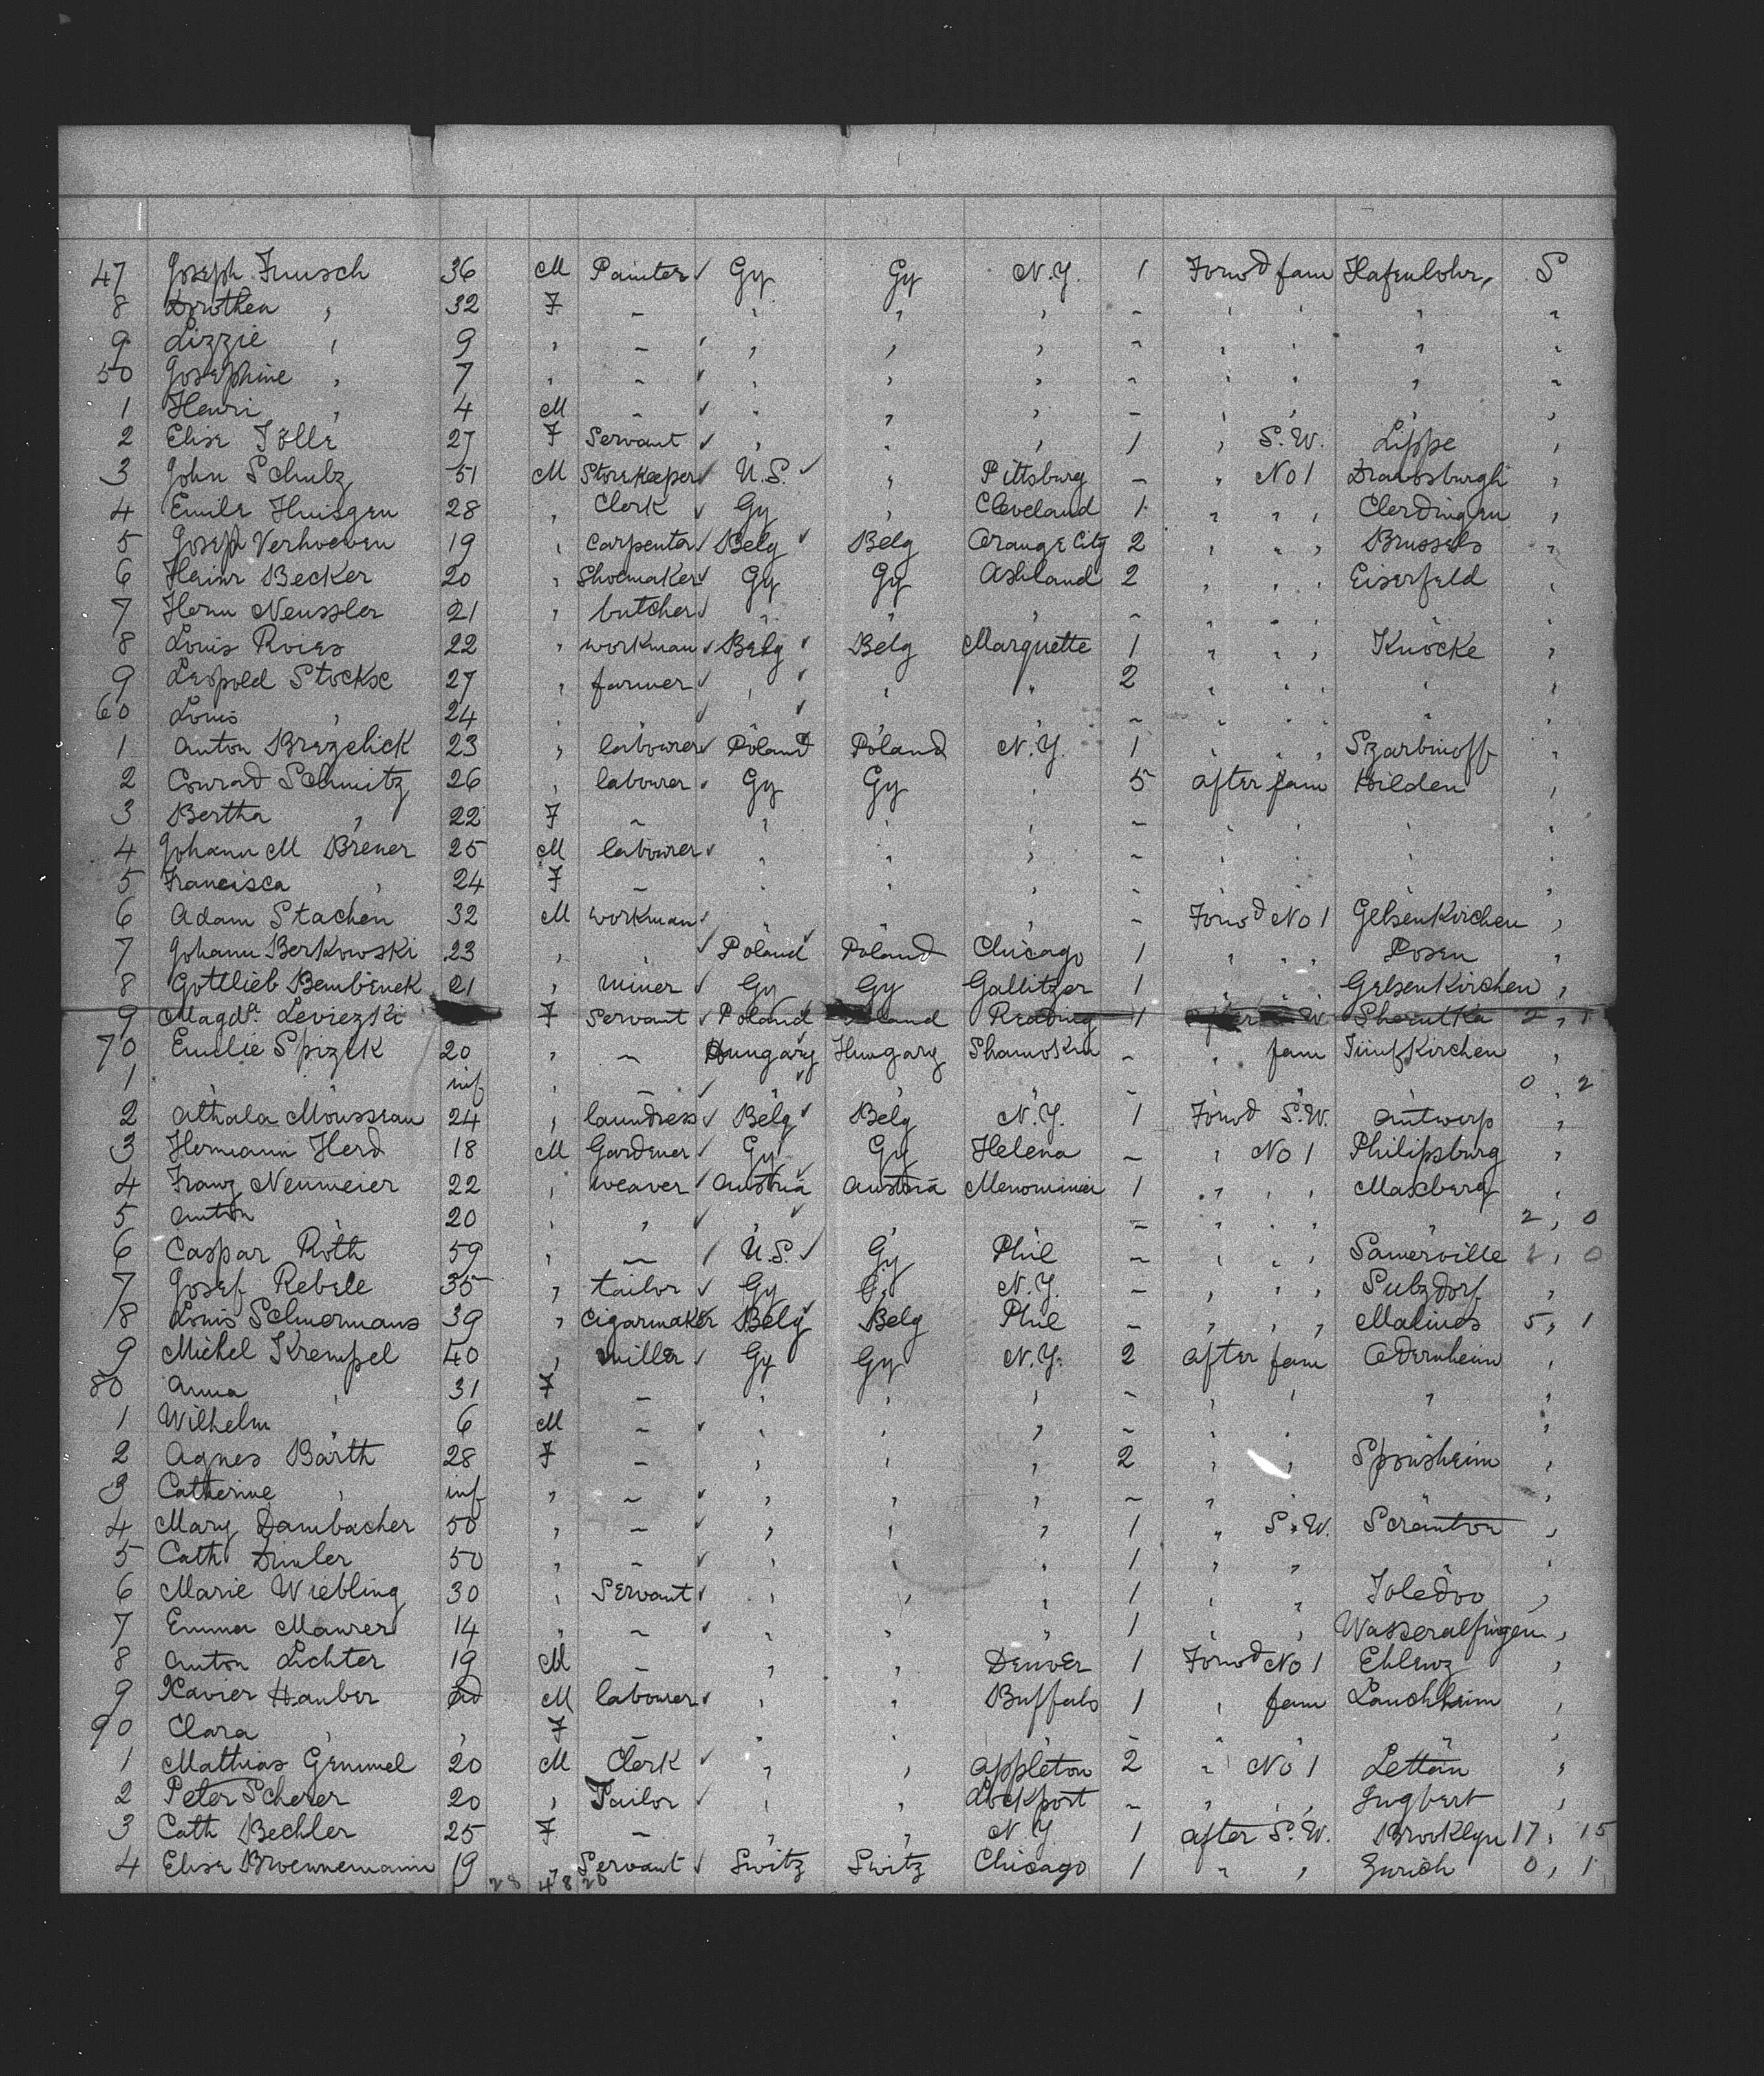 47 Joseph Fruusch 36 M Painter ✓ Gy Gy N.Y. 1 Forwd fam Hafenlohr, S
8 Dorothea , 32 F – , , , – , , , "
9 Lizzie , 9 , – ✓ , , , – , , , "
50 Josephine , 7 , – ✓ , , , – , , , "
1 Henri , 4 M – ✓ , , , – , , , ,
2 Elise Tölle 27 F Servant ✓ , , , 1 , S.W. Lippe ,
3 John Schulz 51 M Storekeeper ✓ U.S. ✓ , Pittsburg – " No 1 ,
4 Emile Huisgen 28 , Clerk ✓ Gy , Cleveland 1 " , , Clerdingen ,
5 Joseph Verhoeven 19 , Carpenter ✓ Belg ✓ Belg Orange City 2 , " , Brussels "
6 Heinr Becker 20 , Shoemaker ✓ Gy Gy Ashland 2 , , , Eiserfeld ,
7 Herm Neussler 21 , butcher ✓ , , , – , , , , ,
8 Louis Roies 22 , workman ✓ Belg ✓ Belg Marquette 1 , , , Knocke ,
9 Leopold Stockse 27 , farmer ✓ , ✓ , " 2 , , , , ,
60 Louis , 24 , , ✓ ✓ , , – , , , " ,
1 Anton Brezelick 23 , labourer ✓ Poland Poland N.Y. 1 , , , Szarbinoff ,
2 Conrad Schmitz 26 , labourer ✓ Gy Gy , 5 after fam Hilden ,
3 Bertha , 22 F – , , , – , , , ,
4 Johann M Brener 25 M labourer ✓ , , , – , , , ,
5 Francisca , 24 F – , , , – , , , ,
6 Adam Stachen 32 M workman ✓ , , , – Forwd No 1 Gelsenkirchen ,
7 Johann Berkowski 23 , , ✓ Poland ✓ Poland Chicago 1 , , , Posen ,
8 Gottlieb Bembenek 21 , miner ✓ Gy Gy Gallitzer 1 , Gelsenkirchen ,
9 Magda. Leviezki F Servant ✓ Poland Reading 1 W. 2, 1
70 Emilie Spizek 20 , – Hungary Hungary Shamokin – , fam Fünfkirchen ,
1 , " inf , – ✓ , ✓ , " – , , , 0, 2
2 Athala Mousseau 24 , laundress ✓ Belg ✓ Belg N.Y. 1 Forwd S.W. Antwerp ,
3 Hermann Herd 18 M Gardener ✓ Gy Gy Helena – , No 1 Philipsburg ,
4 Franz Neumeier 22 , weaver ✓ Austria Austria Menominee 1 , , , Maxberg ,
5 Anton , 20 , , ✓ , ✓ , – , , , " 2, 0
6 Caspar Roth 59 , – ✓ U.S. ✓ Gy Phil – , , , Samerville 2, 0
7 Josef Rebele 35 , tailor ✓ Gy G. N.Y. – , , , Sulzdorf ,
8 Louis Schuermans 39 , Cigarmaker Belg ✓ Belg Phil – , , , Malines 5, 1
9 Michel Krempel 40 , miller ✓ Gy Gy N.Y. 2 after fam Odernheim ,
80 Anna , 31 F – , , , – , , , ,
1 Wilhelm , 6 M – ✓ , , , – , , ,
2 Agnes Barth 28 F – , , , 2 , , Sponsheim ,
3 Catherine , inf , – ✓ , , , – , , , ,
4 Mary Dambacher 50 , – ✓ , , , 1 " S.W. Scranton ,
5 Cath Dimler 50 , – ✓ , , , 1 , , , ,
6 Marie Wiebling 30 , Servant ✓ , , , 1 , , Toledoo ,
7 Emma Maurer 14 , – ✓ , , , 1 , , Wasseralfingen ,
8 Anton Lichter 19 M – , , Denver 1 Forwd No 1 Ehlenz ,
9 Xavier Hauber ad M labourer ✓ , , Buffalo 1 , fam Lauchheim ,
90 Clara , , F – , , , – , , " ,
1 Mathias Gemmel 20 M Clerk ✓ , , Appleton 2 " No 1 Lettan ,
2 Peter Scherer 20 , Tailor ✓ , , Lockport – , , , Ingbert ,
3 Cath Bechler 25 F – , , N.Y. 1 after S.W. Brooklyn 17, 15
4 Elise Broennemann 19 , Servant ✓ Switz Switz Chicago 1 " , Zurich 0, 1
28 48 20